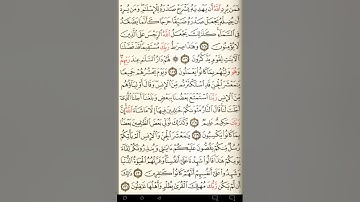 فَمَن يُرِدِ ٱللَّهُ أَن يَهْدِيَهُۥ يَشْرَحْ صَدْرَهُۥ لِلْإِسْلَٰمِ وَمَن يُرِدْ
أَن يُضِلَّهُۥ يَجْعَلْ صَدْرَهُۥ ضَيِّقًا حَرَجًا كَأَنَّمَا يَصَّعَّدُ
فِى ٱلسَّمَآءِ كَذَٰلِكَ يَجْعَلُ ٱللَّهُ ٱلرِّجْسَ عَلَى ٱلَّذِينَ
لَا يُؤْمِنُونَ ١٢٥ وَهَٰذَا صِرَٰطُ رَبِّكَ مُسْتَقِيمًا قَدْ فَصَّلْنَا
ٱلْءَايَٰتِ لِقَوْمٍ يَذَّكَّرُونَ ١٢٦ ۞ لَهُمْ دَارُ ٱلسَّلَٰمِ عِندَ رَبِّهِمْ
وَهُوَ وَلِيُّهُم بِمَا كَانُوا۟ يَعْمَلُونَ ١٢٧ وَيَوْمَ يَحْشُرُهُمْ جَمِيعًا
يَٰمَعْشَرَ ٱلْجِنِّ قَدِ ٱسْتَكْثَرْتُم مِّنَ ٱلْإِنسِ وَقَالَ أَوْلِيَآؤُهُم
مِّنَ ٱلْإِنسِ رَبَّنَا ٱسْتَمْتَعَ بَعْضُنَا بِبَعْضٍ وَبَلَغْنَآ أَجَلَنَا ٱلَّذِىٓ
أَجَّلْتَ لَنَا قَالَ ٱلنَّارُ مَثْوَىٰكُمْ خَٰلِدِينَ فِيهَآ إِلَّا مَا شَآءَ ٱللَّهُ إِنَّ
رَبَّكَ حَكِيمٌ عَلِيمٌ ١٢٨ وَكَذَٰلِكَ نُوَلِّى بَعْضَ ٱلظَّٰلِمِينَ بَعْضًۢا
بِمَا كَانُوا۟ يَكْسِبُونَ ١٢٩ يَٰمَعْشَرَ ٱلْجِنِّ وَٱلْإِنسِ أَلَمْ يَأْتِكُمْ
رُسُلٌ مِّنكُمْ يَقُصُّونَ عَلَيْكُمْ ءَايَٰتِى وَيُنذِرُونَكُمْ لِقَآءَ
يَوْمِكُمْ هَٰذَا قَالُوا۟ شَهِدْنَا عَلَىٰٓ أَنفُسِنَا وَغَرَّتْهُمُ ٱلْحَيَوٰةُ ٱلدُّنْيَا
وَشَهِدُوا۟ عَلَىٰٓ أَنفُسِهِمْ أَنَّهُمْ كَانُوا۟ كَٰفِرِينَ ١٣٠ ذَٰلِكَ
أَن لَّمْ يَكُن رَّبُّكَ مُهْلِكَ ٱلْقُرَىٰ بِظُلْمٍ وَأَهْلُهَا غَٰفِلُونَ ١٣١